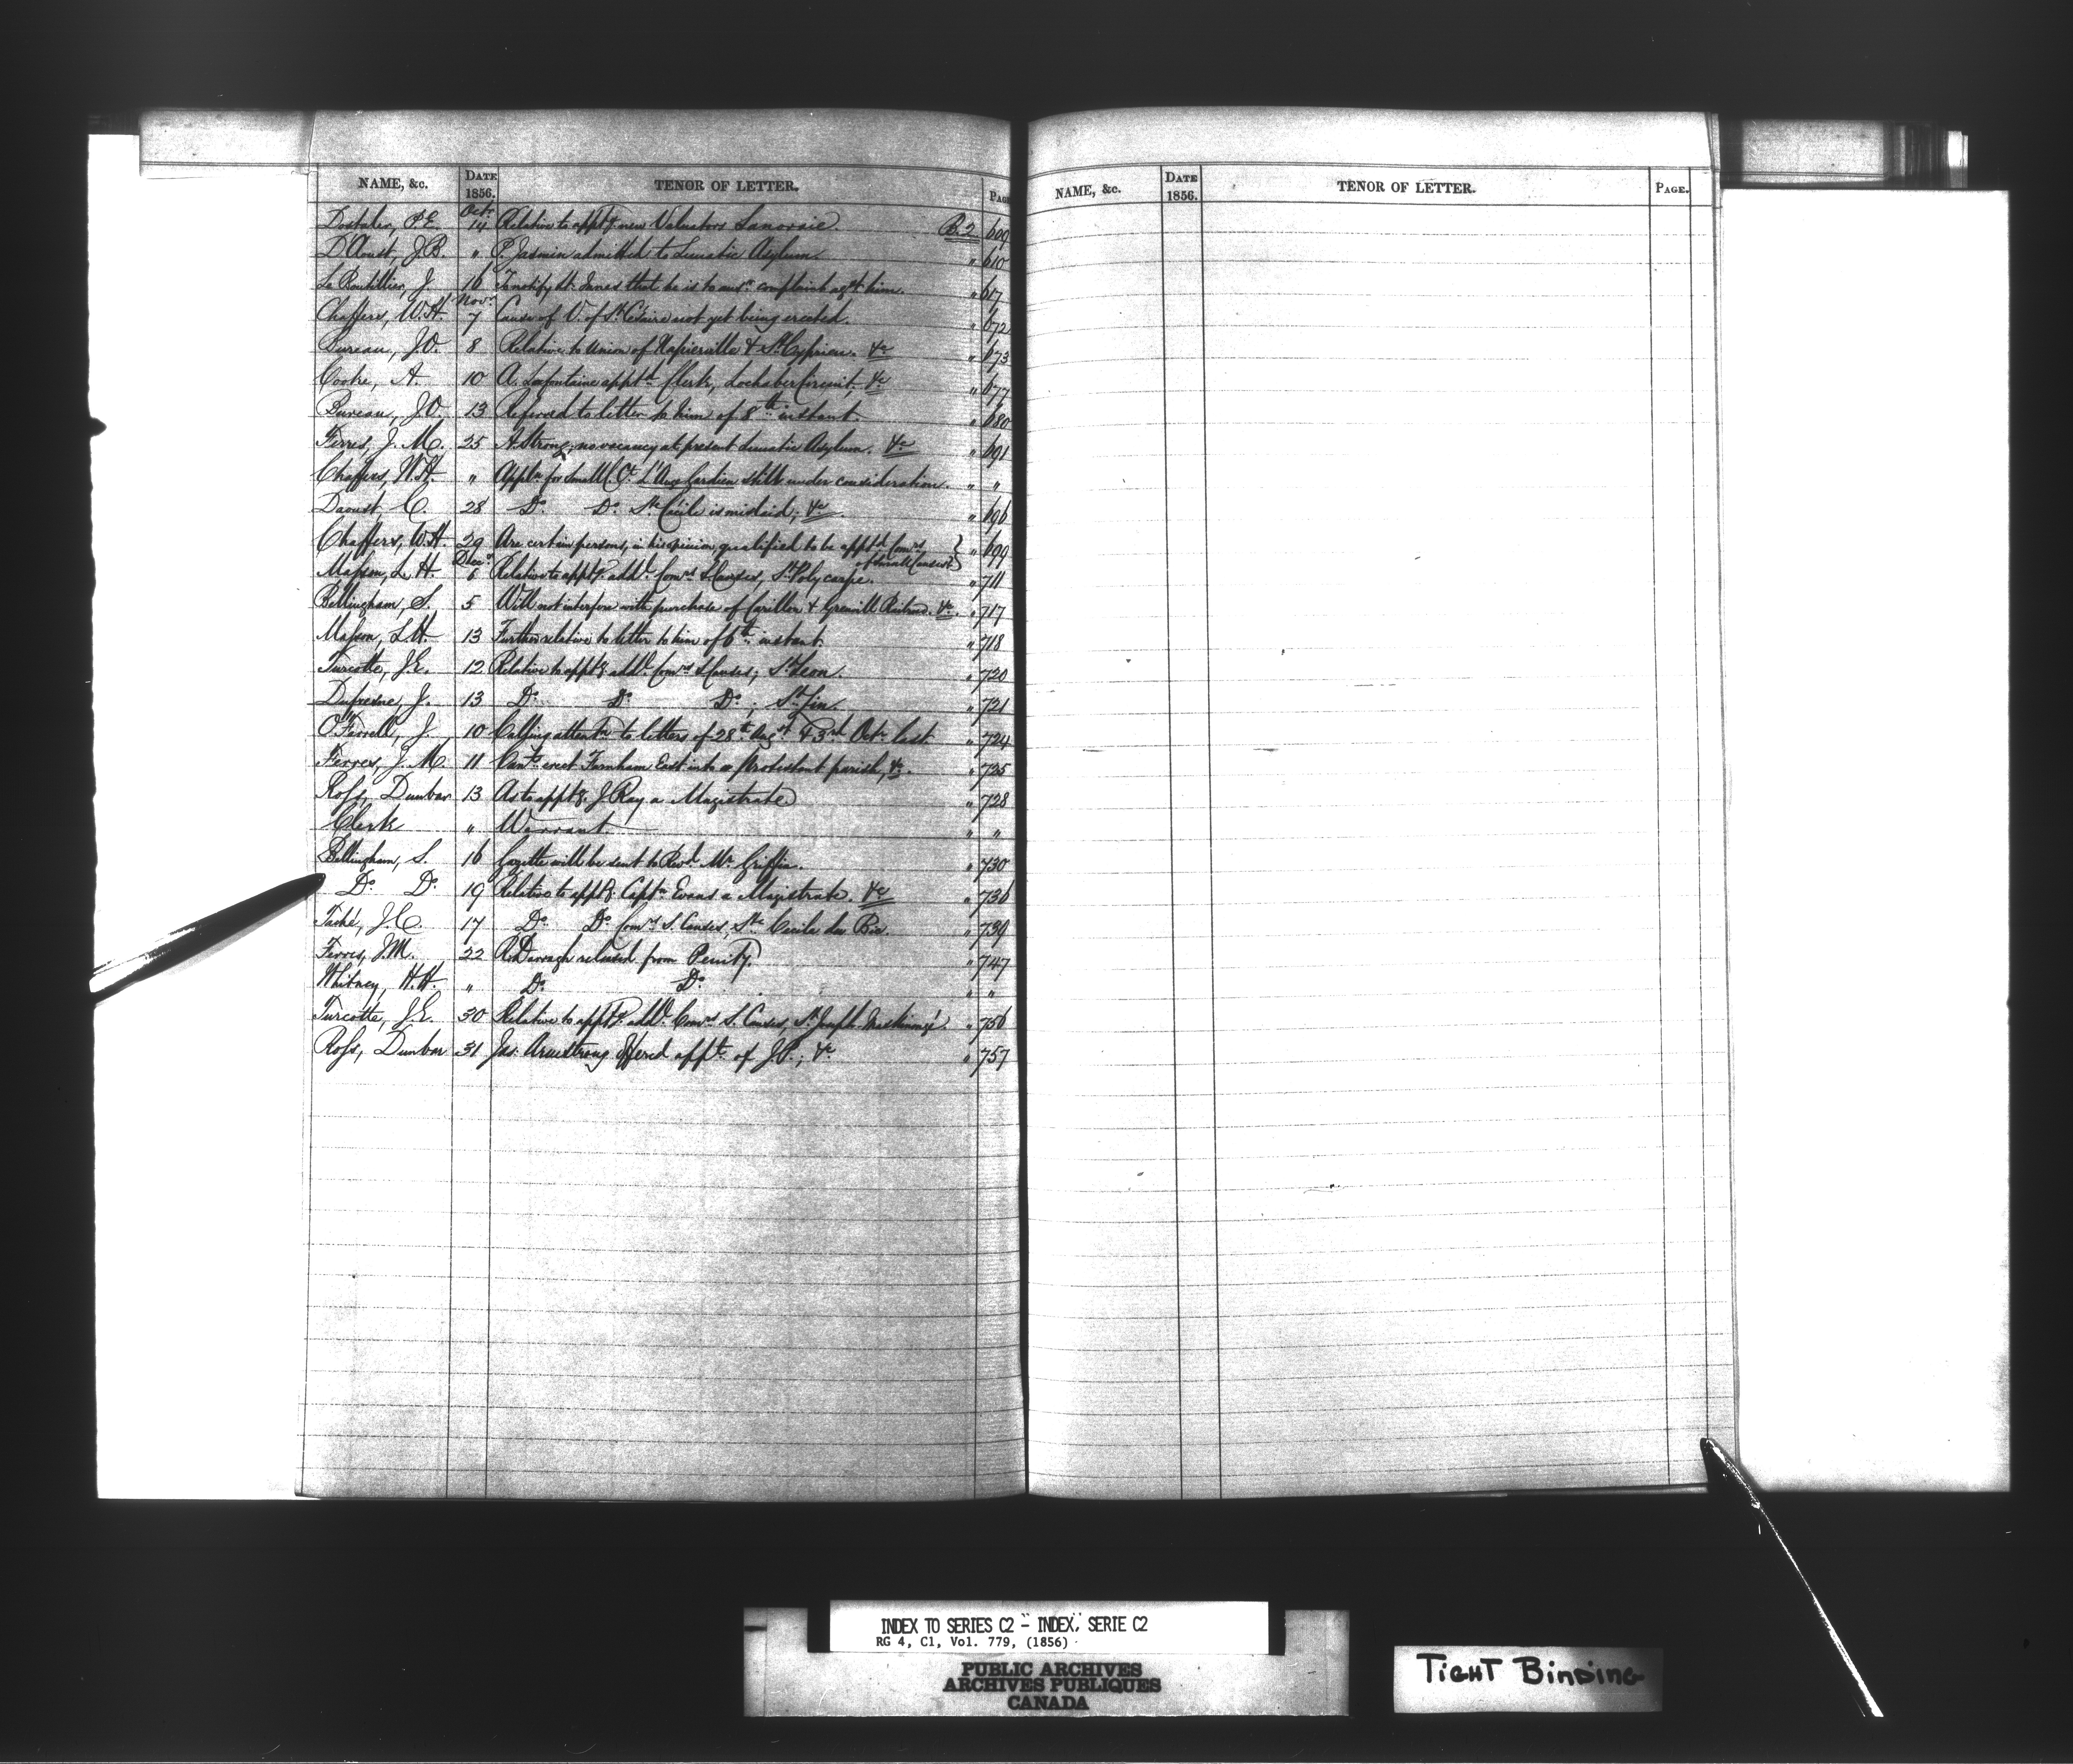 NAME, &c. DATE 1856. TENOR OF LETTER. PAGE
Oct.
Dostaler, P.E. 14 Relative to apptg. new Valuators Lanoraie B.2 609
D'Aoust, J.B. " P. Jasmin admitted to Lunatic Asylum. " 610
Le Boutillier, J. 16 To notify Mr. Innes that he is to answ. complaint agst. him. " 617
Novr.
Chaffers, W.H. 7 Cause of V. of St. Césaire not yet being erected. " 672
Bureau, J.O. 8 Relative to union of Napierville & St. Cyprien. &c " 673
Cooke, A. 10 A. Lafontaine apptd. Clerk, Lochaber Circuit, &c " 677
Bureau, J.O. 13 Referred to letter to him of 8th instant. " 680
Ferres, J. M. 25 Strong; no vacancy at present Lunatic Asylum. &c " 691
Chaffers, W.H. " Appln. for Small C. Ct. L'Ange Gardien still under consideration. " "
Daoust, C. 28 Do. Do. Ste. Cécile is mislaid; &c. " 696
Chaffers, W.H. 29 Are certain persons, in his opinion, qualified to be apptd. Comrs. } " 699
of Small Causes? }
Decr.
Masson, L.H. 6 Relative to apptg. addl. Comrs. S. Causes, St. Polycarpe. " 711
Bellingham, S. 5 Will not interfere with purchase of Carillon & Grenvill Railroad. &c. " 717
Masson, L.H. 13 Further relative to letter to him of 6th instant. " 718
Turcotte, J.E. 12 Relative to apptg. addl. Comrs. S. Causes; St. Leon. " 720
Dufresne, J. 13 Do. Do. Do.; St. Lin " 721
O'Farrell, J. 10 Calling attentn. to letters of 28th. Augst. & 3rd. Octr. last. " 724
Ferres, J.M. 11 Can't erect Farnham East into a Protestant parish, &c. " 725
Ross, Dunbar 13 As to apptg. J. Ray a Magistrate " 728
Clerk " Warrant " "
Bellingham, S. 16 Gazette will be sent to Revd. Mr. Griffin. " 730
Do. Do. 19 Relative to apptg. Captn. Evans a Magistrate. &c " 736
Taché, J.C. 17 Do. Do. Comrs. S. Causes, Ste. Cecile du Bic. " 739
Ferres, J.M. 22 R. Darragh released from Penity. " 747
Whitney, H.H. " Do. Do. " "
Turcotte, J.E. 30 Relative to apptg. addl. Comrs. S. Causes, St. Joseph Maskinongé. " 756
Ross, Dunbar 31 Jas. Armstrong offered appt. of J.P.; &c " 757
NAME, &c. DATE 1856. TENOR OF LETTER. PAGE.
INDEX TO SERIES C2 - INDEX, SERIE C2
RG 4, C1, Vol. 779, (1856)
PUBLIC ARCHIVES
ARCHIVES PUBLIQUES
CANADA
TIGHT BINDING